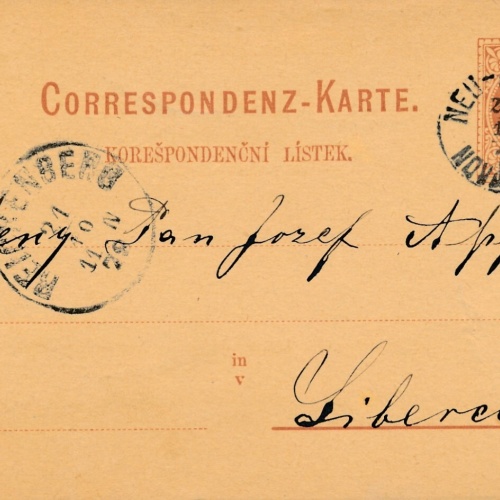 CORRESPONDENZ-KARTE.
KOREŠPONDENČNÍ LÍSTEK.
NEU-
REICHENBERG
21
10
11 N
79
Pan Jozef App
in
v
Liberc